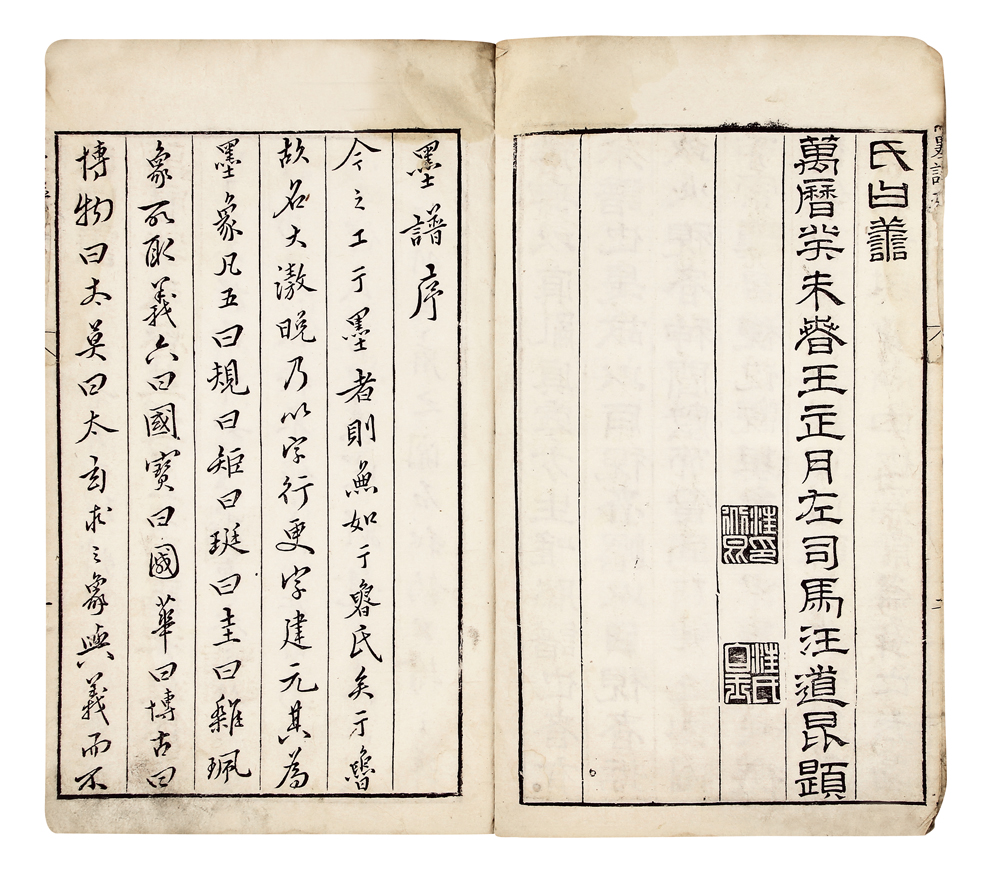 氏曰譱
萬曆癸未春王正月左司馬汪道昆題
汪印道昆
汪氏伯玉
墨譜序
今之工于墨者則無如于魯氏矣于魯
故名大激晚乃以字行更字建元其為
墨象凡五曰規曰矩曰珽曰圭曰雜珮
象所取義六曰國寶曰國華曰博古曰
博物曰太莫曰太玄求之象與義而不